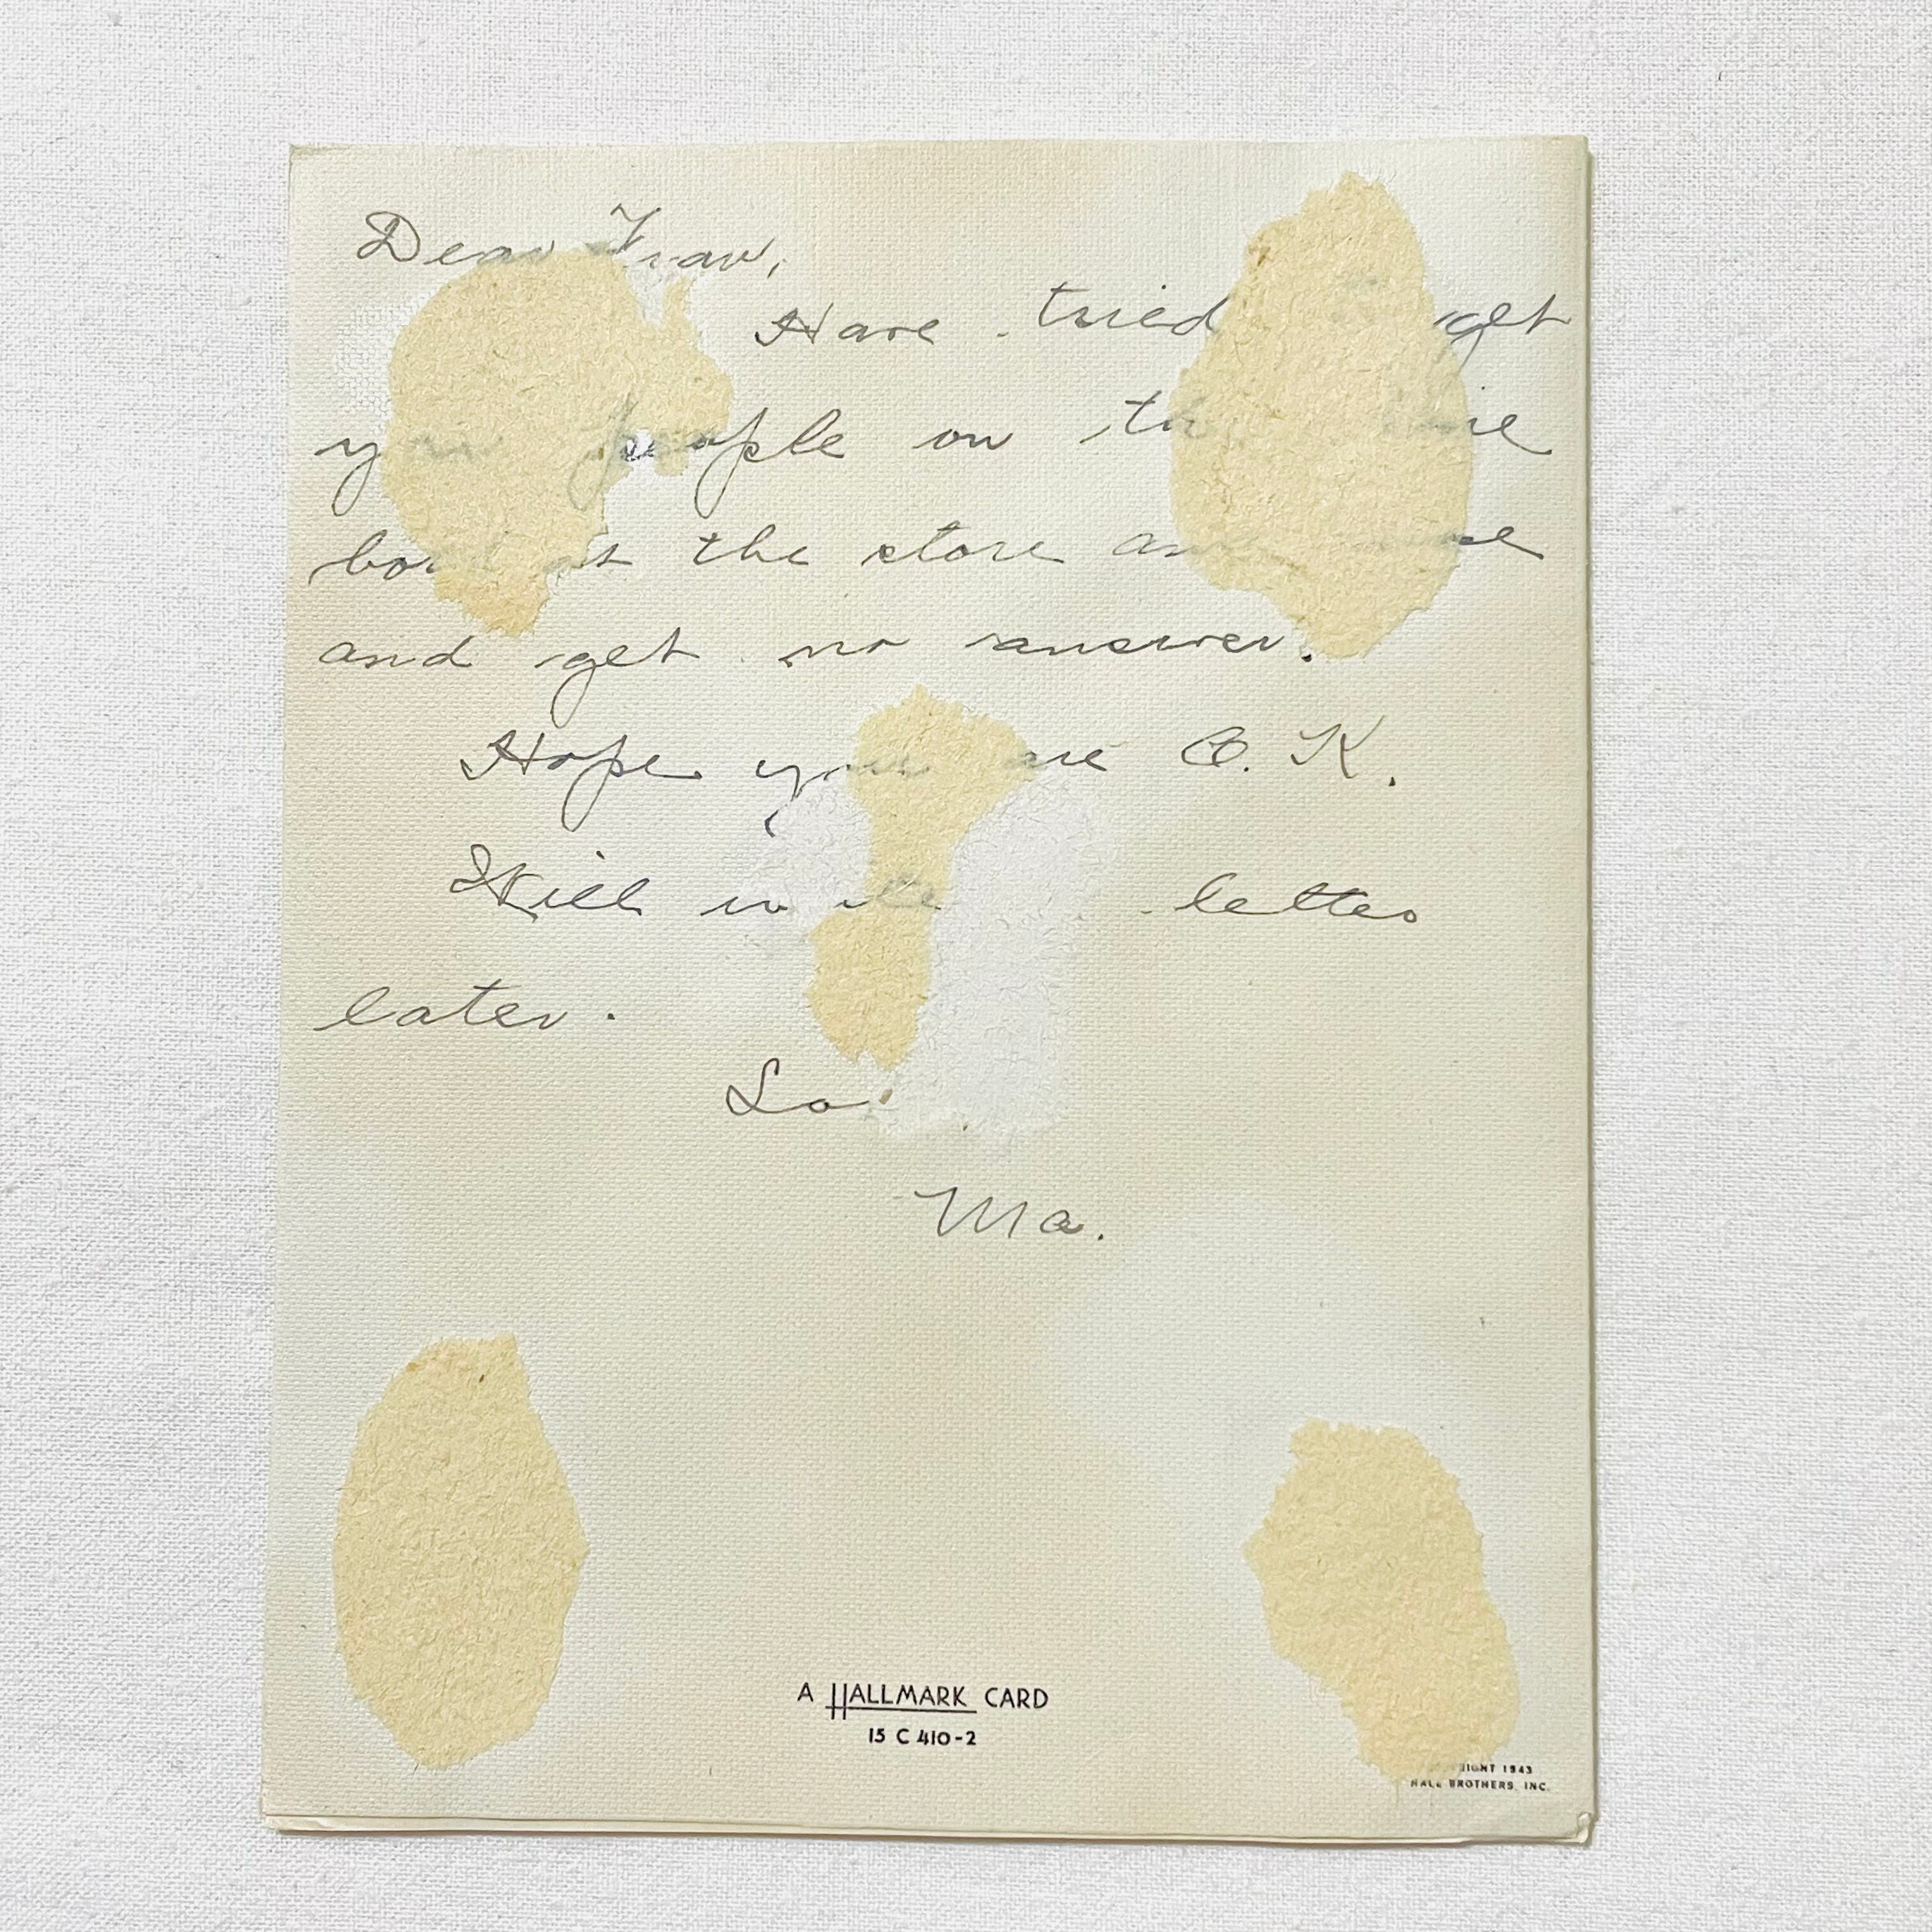 Dear Fran,
Have tried get
you people on
the store
and get no answer.
Hope you are O.K.
Will write letter
later.
Ma.
A HALLMARK CARD
15 C 410-2
1943
HALL BROTHERS, INC.